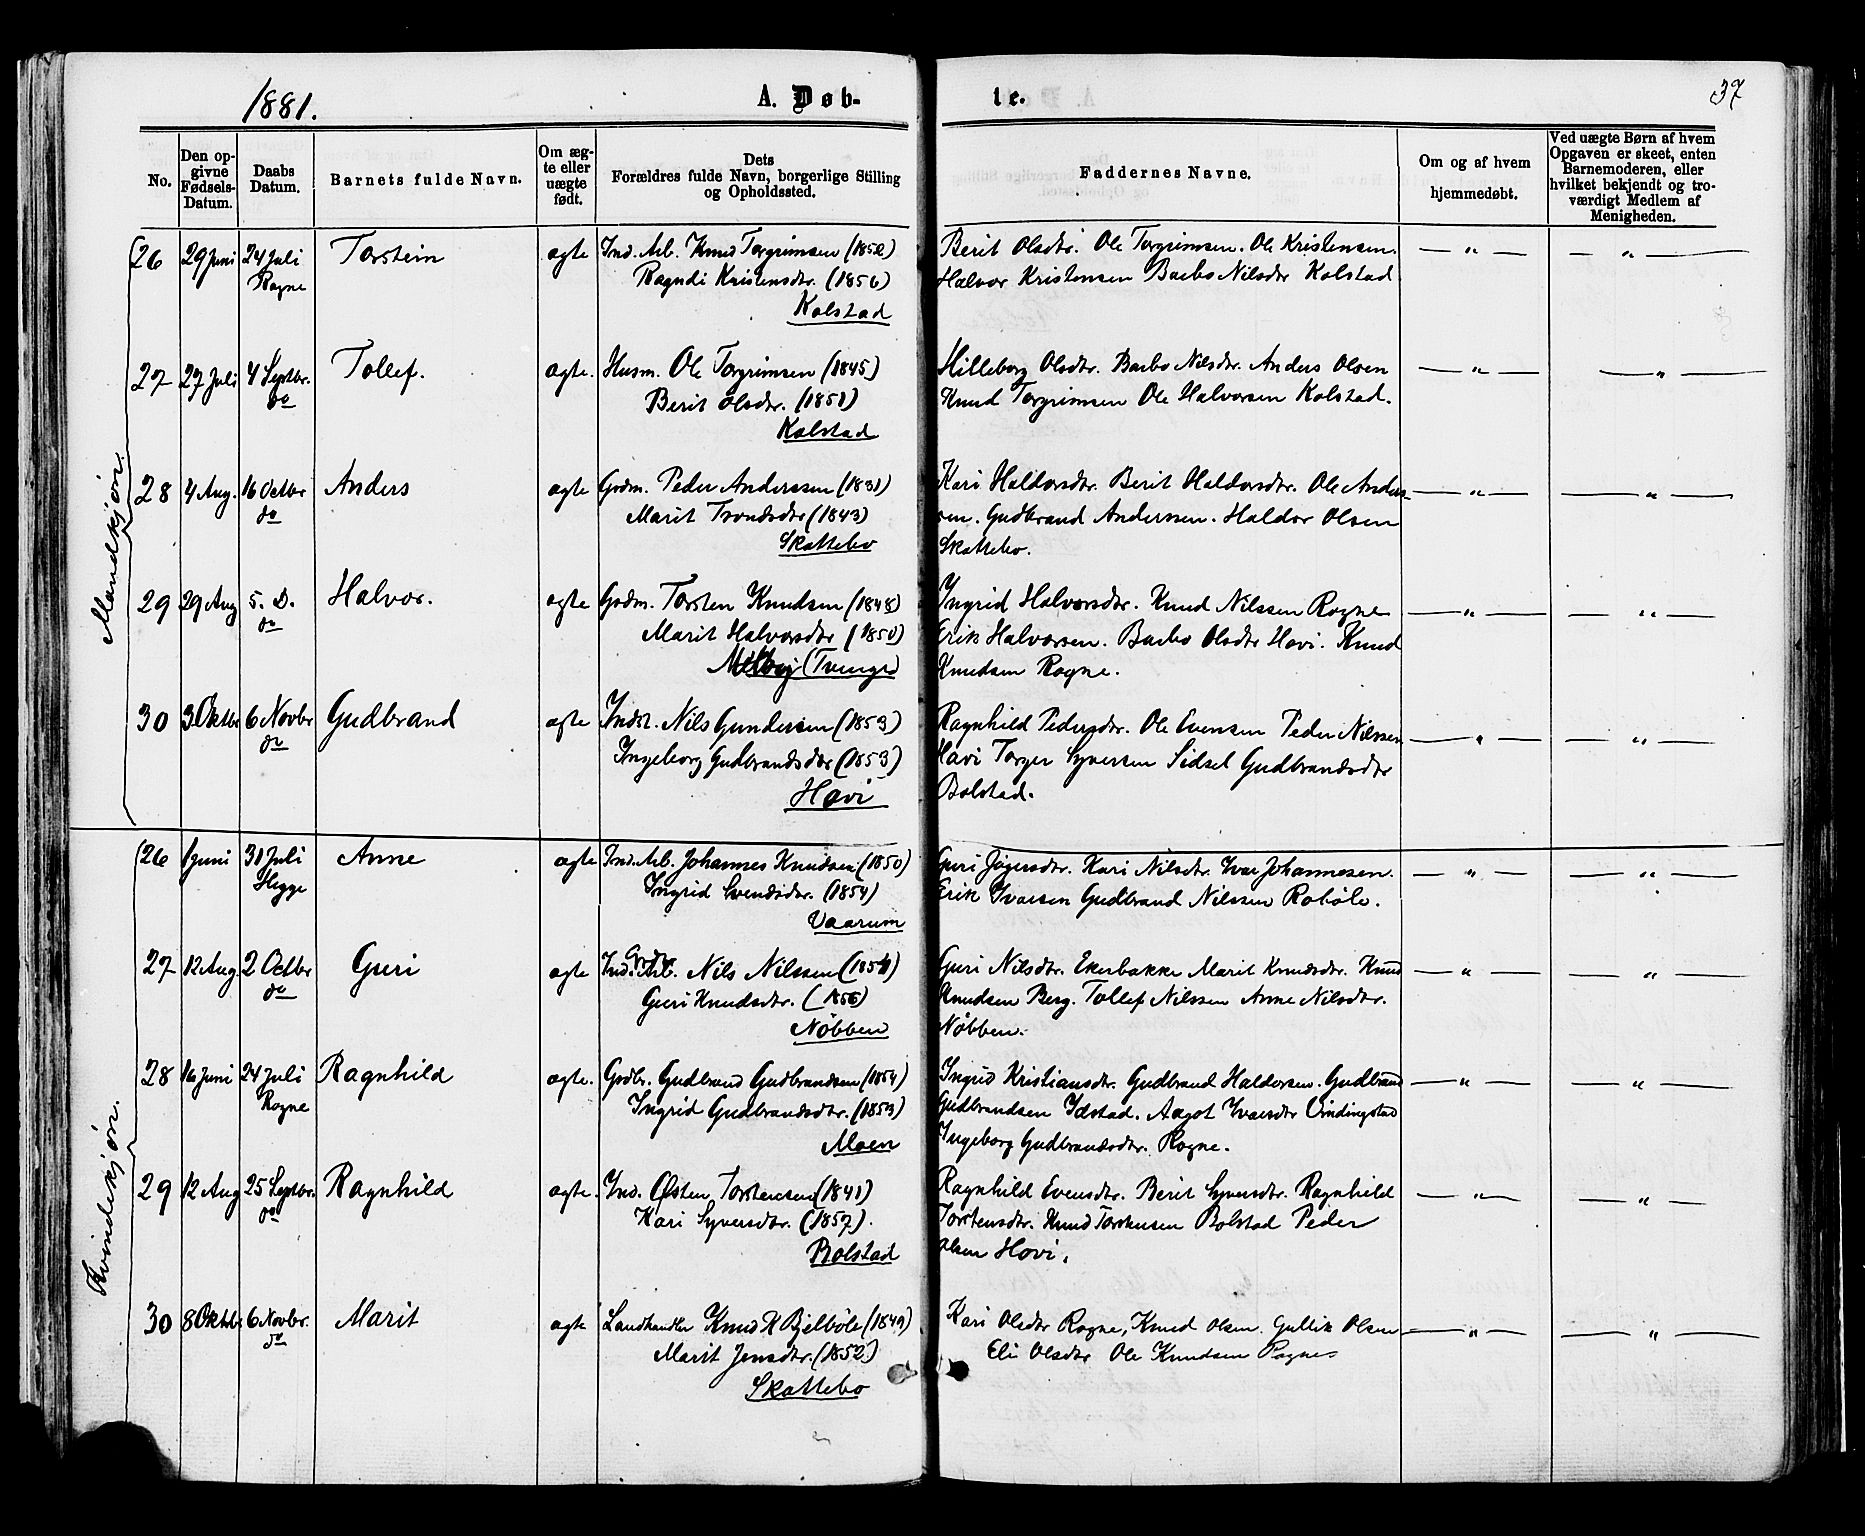 1881.
A. Døb-
te.
37
No.
Den op-
givne
Fødsels-
Datum.
Daabs
Datum.
Barnets fulde Navn.
Om æg-
te eller
uægte
født.
Dets
Forældres fulde Navn, borgerlige Stilling
og Opholdssted.
Faddernes Navne.
Om og af hvem
hjemmedøbt.
Ved uægte Børn af hvem
Opgaven er skeet, enten
Barnemoderen, eller
hvilket bekjendt og tro-
værdigt Medlem af
Menigheden.
Mandkjøn.
26 29 Juni 24 Juli Torstein ægte Ind. Arb. Knud Torgrimsen (1852) Berit Olsdtr. Ole Torgrimsen. Ole Kristensen. — " — — " —
Rogne Ragndi Kristensdtr. (1856) Halvor Kristensen Barbo Nilsdtr Kolstad
Kolstad
27 27 Juli 4 Septbr. Tollef. ægte. Husm. Ole Torgrimsen (1845) Hilleborg Olsdtr. Barbo Nilsdtr. Anders Olsen — " — — " —
do Berit Olsdtr. (1851) Knud Torgrimsen Ole Halvorsen Kolstad.
Kolstad
28 4 Aug. 16 Octbr Anders ægte Grdm. Peder Anderssen (1831) Kari Haldorsdtr. Berit Haldorsdtr. Ole Anders- — " — — " —
do Marit Trondsdtr (1843) sen. Gudbrand Anderssen. Haldor Olsen
Skattebo Skattebo.
29 29 Aug 5. D. Halvor. ægte Grdm. Torsten Knudsen (1848) Ingrid Halvorsdtr. Knud Nilssen Rogne — " — — " —
do Marit Halvorsdtr (1850) Erik Halvorsen. Barbo Olsdtr Hovi. Knud
(Tvenge) Knudsen Rogne.
30 3 Oktbr 6 Novbr Gudbrand ægte Indst. Nils Gundersen (1853) Ragnhild Pedersdtr. Ole Evensen Peder Nilssen — " — — " —
do Ingeborg Gudbrandsdtr (1853) Hovi Torger Syversen Sidsel Gudbrandsdtr
Hovi Bolstad.
Kvindekjøn.
26 1 Juni 31 Juli Anne ægte Ind. Arb. Johannes Knudsen (1850) Guri Jøgersdtr. Kari Nilsdtr. Ivar Johannesen. — " — — " —
Hegge Ingrid Svendsdtr. (1854) Erik Ivarsen Gudbrand Nilssen Robøle.
Vaarum
27 12 Aug 2 Octbr Guri ægte Ind. Arb. Nils Nilssen Guri Nilsdtr. Ekerbakke Marit Knudsdtr. Knud — " — — " —
do Guri Knudsdtr. Knudsen Berg. Tollef Nilssen Anne Nilsdtr.
Nøbben Nøbben.
28 16 Juni 24 Juli Ragnhild ægte. Grdbr. Gudbrand Gudbrandsen (1854) Ingrid Kristiansdtr. Gudbrand Haldorsen. Gudbrand — " — — " —
Rogne Ingrid Gudbrandsdtr. (1853) Gudbrandsen Idstad. Aagot Ivarsdtr Vindingstad
Moen Ingeborg Gudbrandsdtr. Rogne.
29 12 Aug 25 Septbr. Ragnhild ægte. Ind. Østen Torstensen (1841) Ragnhild Evensdtr. Berit Syversdtr. Ragnhild — " — — " —
do Kari Syversdtr. (1857). Torstensdtr. Knud Torstensen Bolstad Peder
Bolstad Olsen Hovi.
30 8 Oktbr 6 Novbr. Marit ægte Landhandler Knud K Bjelbøle (1849) Kari Olsdtr Rogne, Knud Olsen. Gullik Olsen — " — — " —
do Marit Jensdtr. (1852) Eli Olsdtr Ole Knudsen Rogne
Skattebo